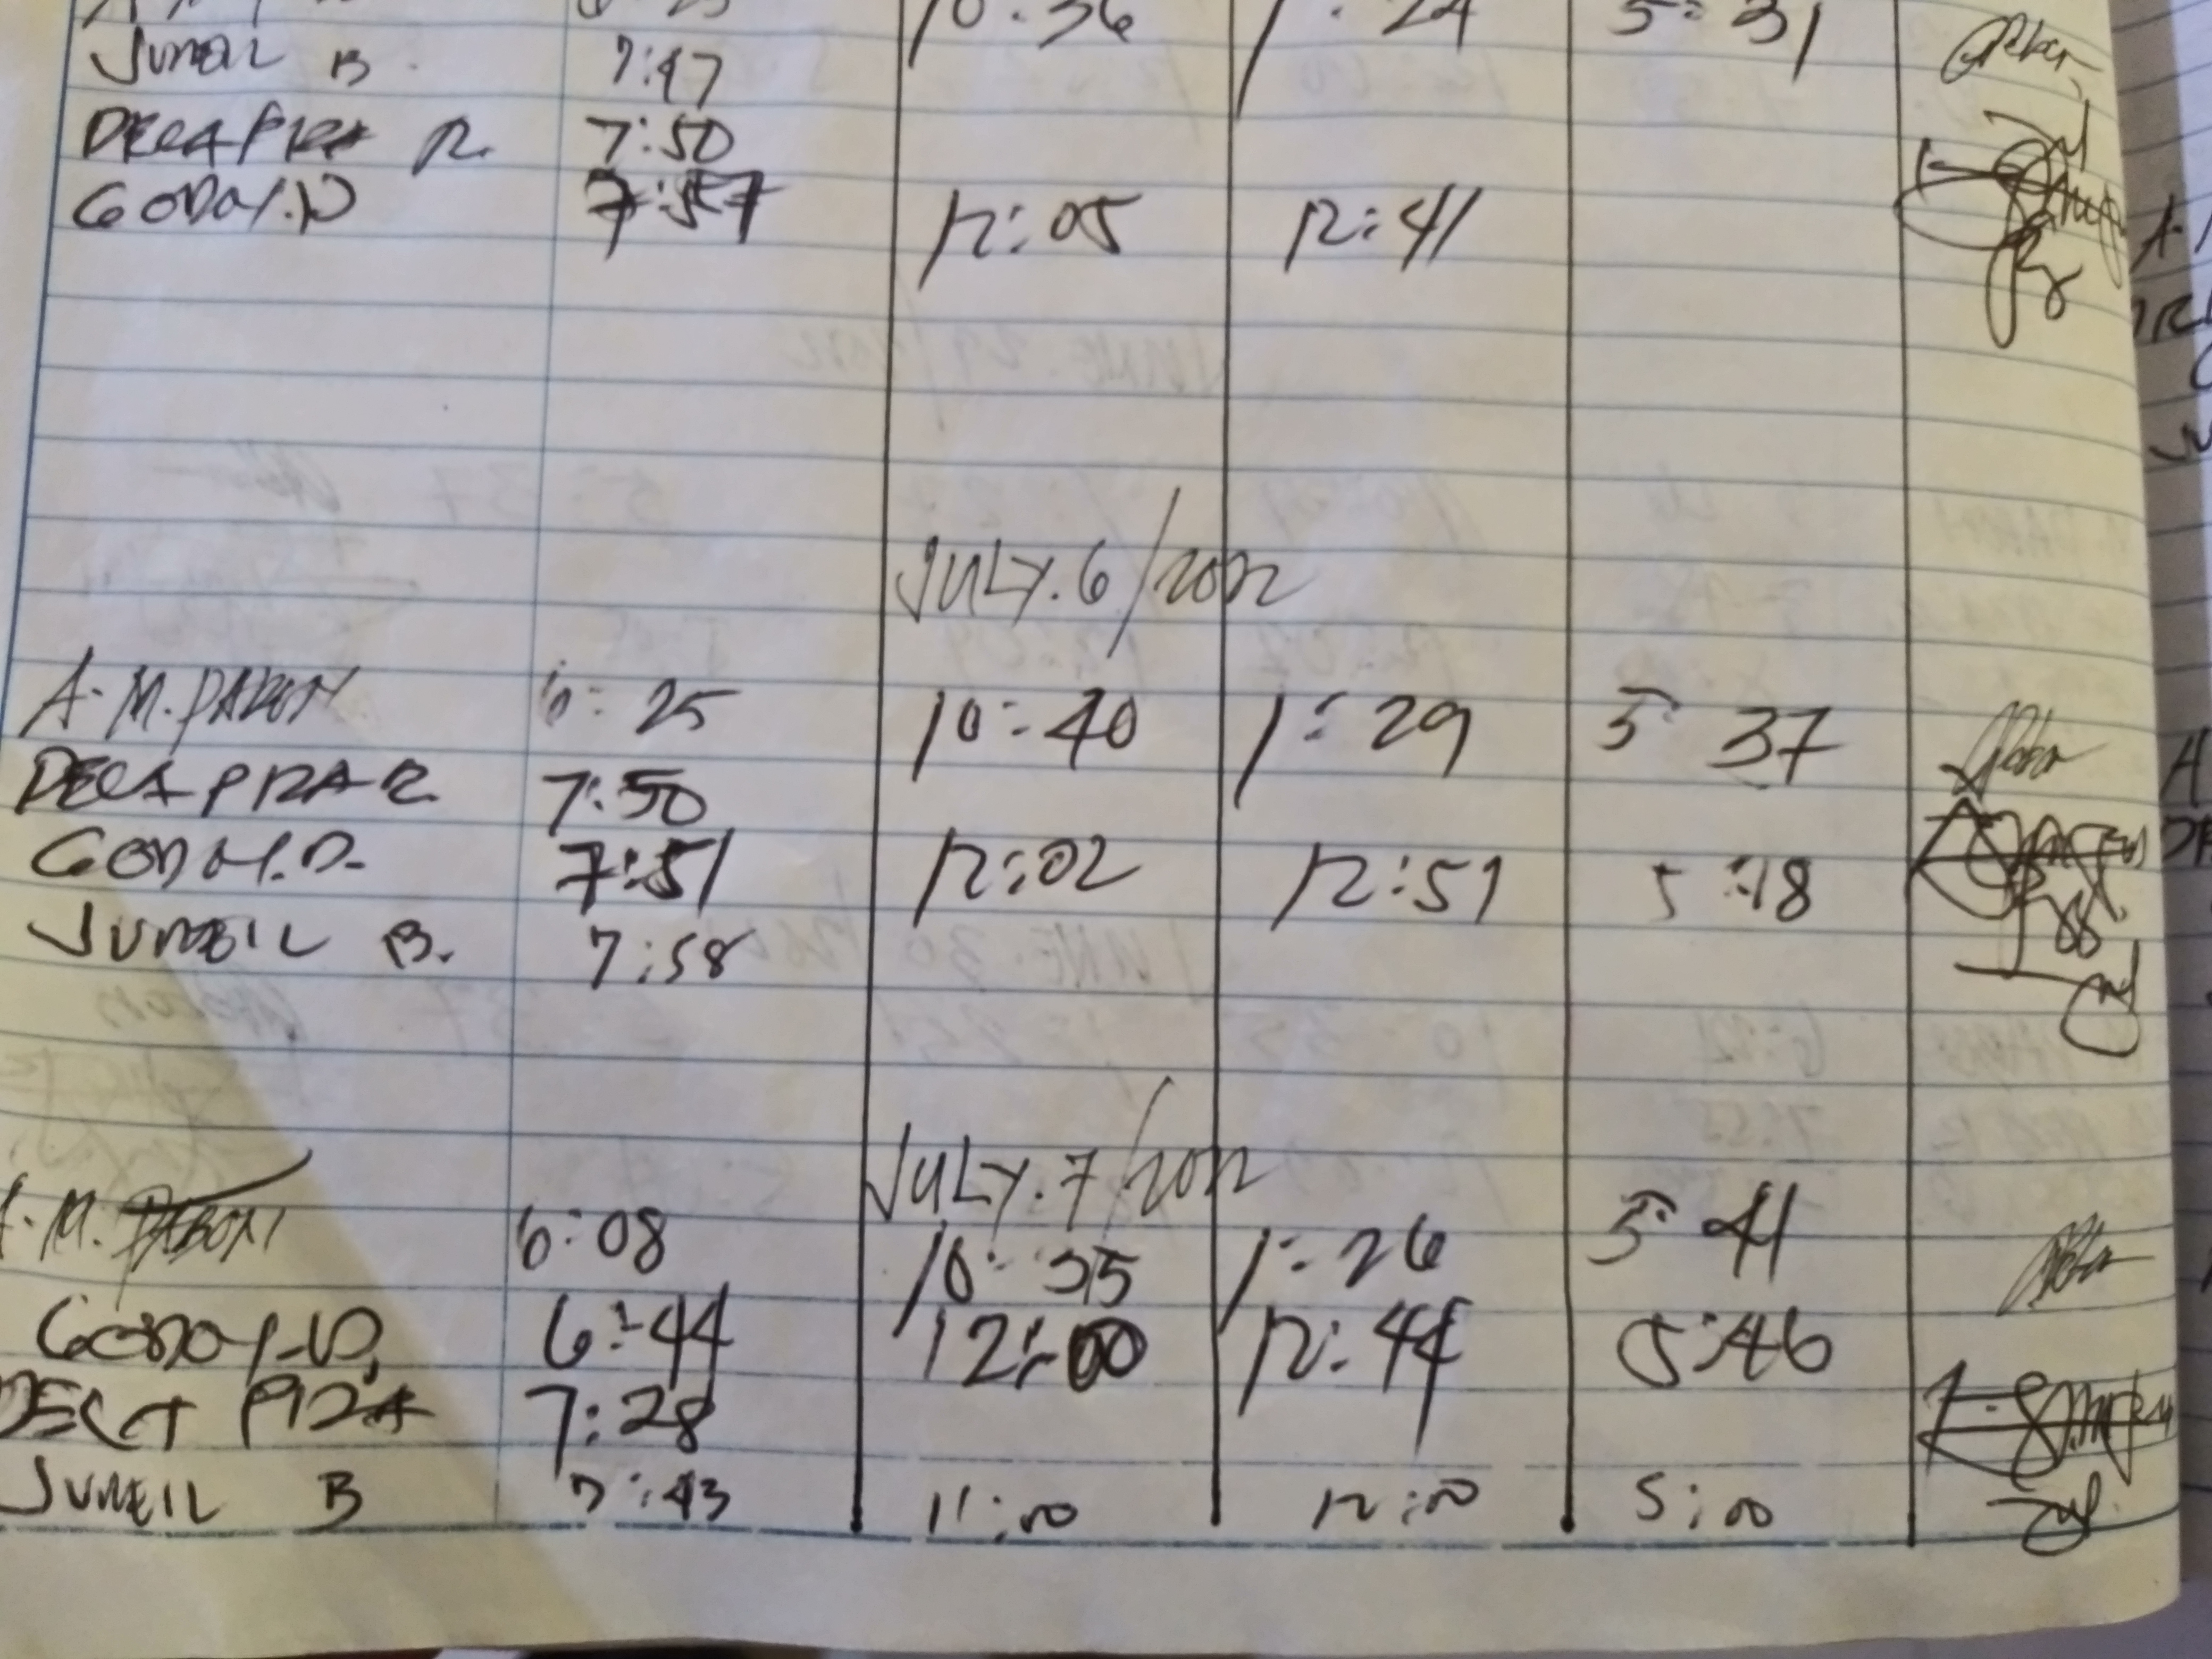 10:36 1:24 5:31
JUNEIL B. 7:47
DECAPRA R. 7:50
GODOY.D 7:57 12:05 12:41
JULY.6/2022
A.M.PABON 6:25 10:40 1:29 5:37
DECAPRA R. 7:50
GODOY.D. 7:51 12:02 12:51 5:18
JUNEIL B. 7:58
JULY.7/2022
A.M.PABON 6:08 10:35 1:26 5:41
GODOY.D. 6:44 12:00 12:44 5:46
DECAPRA 7:28
JUNEIL B 7:43 11:00 12:00 5:00